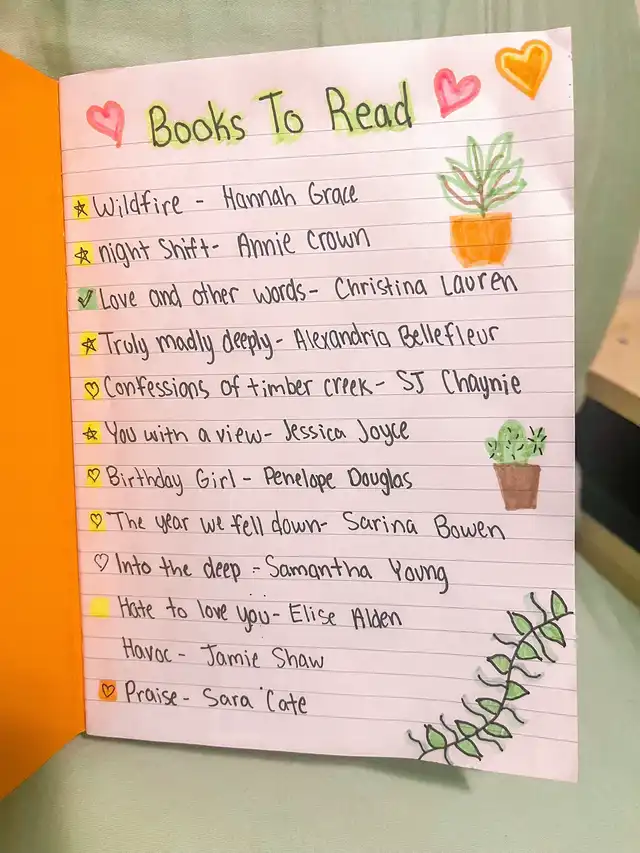 Books To Read
Wildfire - Hannah Grace
night Shift - Annie Crown
Love and other words - Christina Lauren
Truly madly deeply - Alexandria Bellefleur
Confessions of timber creek - SJ Chaynie
You with a view - Jessica Joyce
Birthday Girl - Penelope Douglas
The year we fell down - Sarina Bowen
Into the deep - Samantha Young
Hate to love you - Elise Alden
Havoc - Jamie Shaw
Praise - Sara Cate